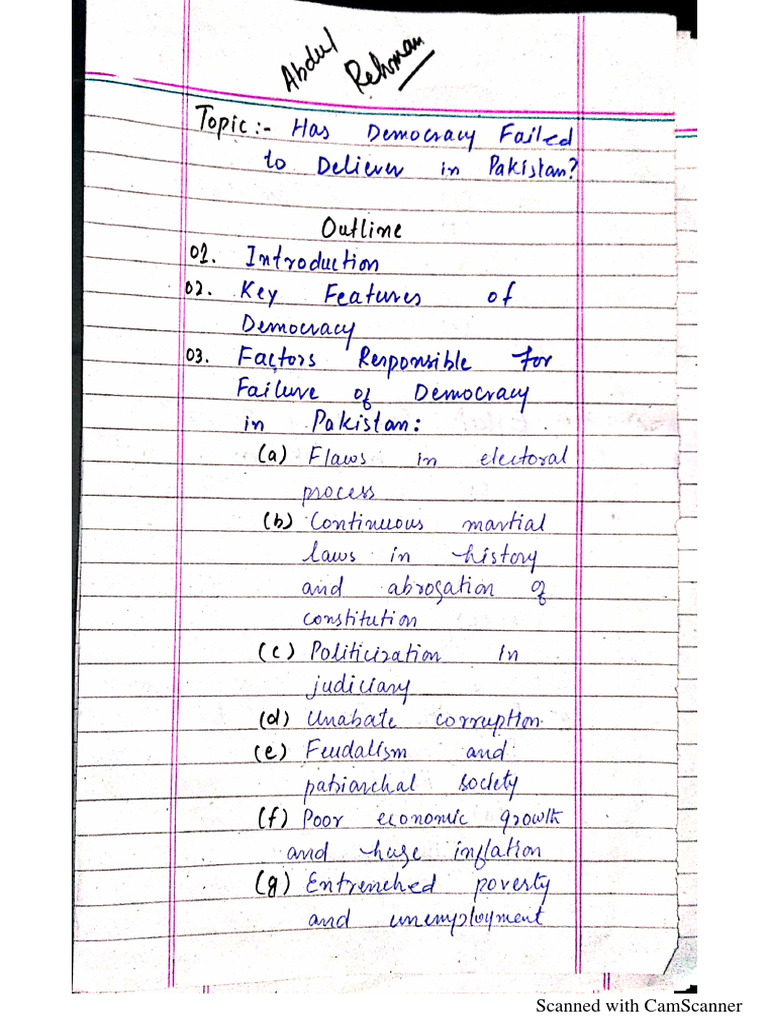 Abdul
Rehman
Topic:- Has Democracy Failed
to Deliever in Pakistan?
Outline
01. Introduction
02. Key Features of
Democracy
03. Factors Responsible for
Failure of Democracy
in Pakistan:
(a) Flaws in electoral
process
(b) Continuous martial
laws in history
and abrogation of
constitution
(c) Politicization in
judiciary
(d) Unabate corruption
(e) Feudalism and
patriarchal society
(f) Poor economic growth
and huge inflation
(g) Entrenched poverty
and unemployment
Scanned with CamScanner